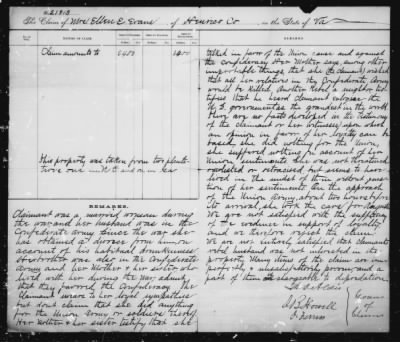 The Claim of Mrs Ellen E. Evans of Henrico Co in the State of Va
NATURE OF CLAIM.
Claim amounts to
This property was taken from two
REMARKS.
Claimant was a married woman during
the war and her husband was in the
Confederate Army since the war she
has obtained a divorce from him on
account of his habitual drunkenness
Her brother was also in the Confederate
Army and her Mother & her sister who
lived with her during the war admit
that they favored the Confederacy. The
Claimant swears to her loyal sympathies
but don't claim that she did anything
for the Union Army or soldiers thereof
Her Mother & her sister testify that she
talked in favor of the Union cause and against
the confederacy Her Mother says among other
improbable things that she (the claimant) wished
that all her relations in the Confederate Army
would be killed. Another Rebel a neighbor tes-
tifies that he heard claimant
U.S. government as the grandest in the world
There are no facts developed in the testimony
of the claimant or her witnesses upon which
an opinion in favor of her loyalty can be
based, she did nothing for the Union,
she suffered nothing on account of her
Union Sentiments she was not threatened
molested or ostracised but seems to have
lived in the midst of
of her sentiments till the approach
of the Union Army, about two hours before
its arrival, she
We are not satisfied with the sufficiency
of the evidence in support of loyalty
and we therefore reject the claim.
We are not entirely satisfied that Claimants
rebel husband was not interested in this
property. Many items of the claim are im-
properly & unsatisfactorily proven and a
part of them are chargeable to depredation.
J. B. Howell
O. Ferriss
Comrs
of
Claims